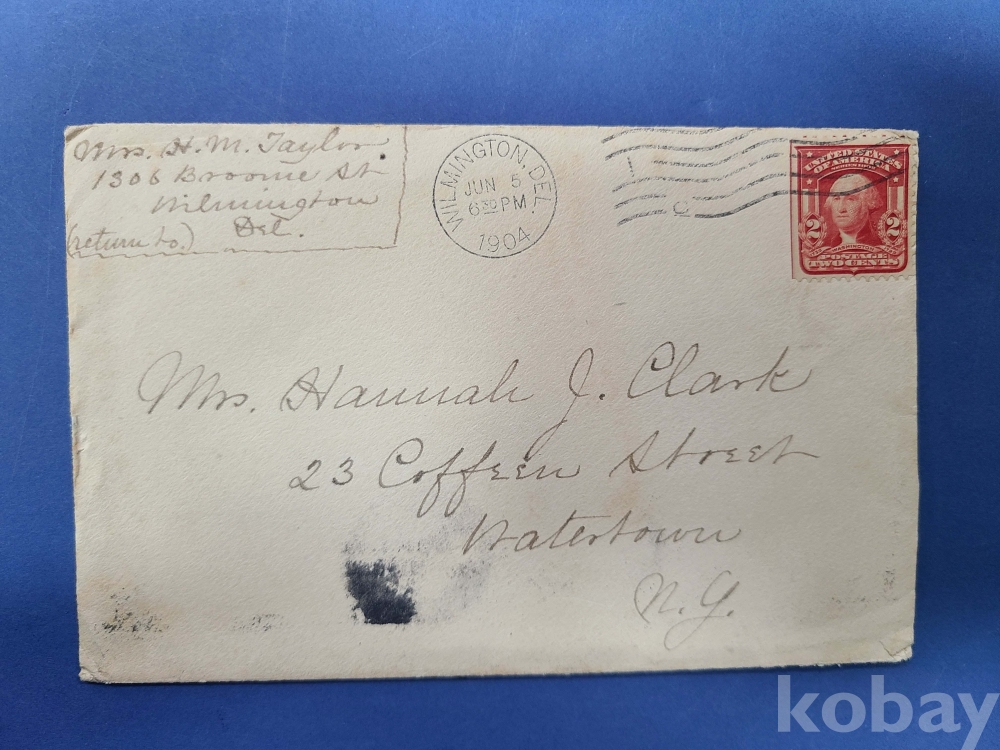 Mrs. H. M. Taylor.
1306 Broome St
Wilmington
Del.
(return to.)
WILMINGTON, DEL.
JUN 5
6 30 PM
1904
UNITED STATES
OF AMERICA
2 2
WASHINGTON
POSTAGE
TWO CENTS
Mrs. Hannah J. Clark
23 Coffeen Street
Watertown
N. Y.
kobay